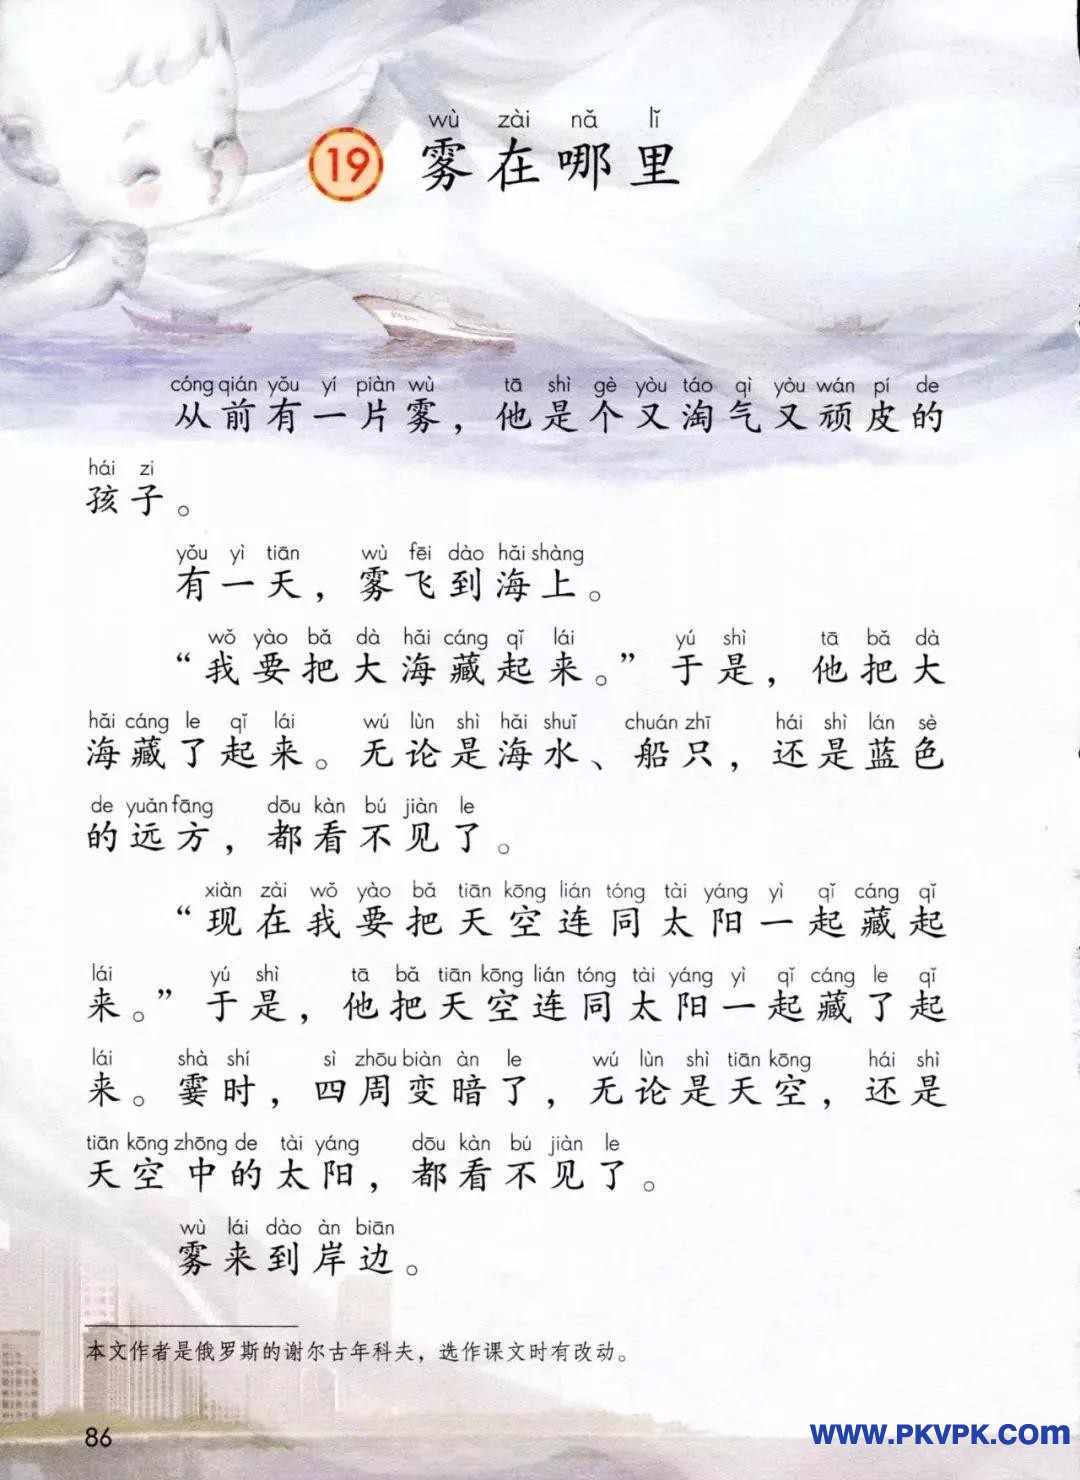 wù zài nǎ lǐ
19 雾在哪里
cóng qián yǒu yí piàn wù tā shì gè yòu táo qì yòu wán pí de
从前有一片雾，他是个又淘气又顽皮的
hái zi
孩子。
yǒu yì tiān wù fēi dào hǎi shàng
有一天，雾飞到海上。
wǒ yào bǎ dà hǎi cáng qǐ lái yú shì tā bǎ dà
“我要把大海藏起来。”于是，他把大
hǎi cáng le qǐ lái wú lùn shì hǎi shuǐ chuán zhī hái shì lán sè
海藏了起来。无论是海水、船只，还是蓝色
de yuǎn fāng dōu kàn bú jiàn le
的远方，都看不见了。
xiàn zài wǒ yào bǎ tiān kōng lián tóng tài yáng yì qǐ cáng qǐ
“现在我要把天空连同太阳一起藏起
lái yú shì tā bǎ tiān kōng lián tóng tài yáng yì qǐ cáng le qǐ
来。”于是，他把天空连同太阳一起藏了起
lái shà shí sì zhōu biàn àn le wú lùn shì tiān kōng hái shì
来。霎时，四周变暗了，无论是天空，还是
tiān kōng zhōng de tài yáng dōu kàn bú jiàn le
天空中的太阳，都看不见了。
wù lái dào àn biān
雾来到岸边。
本文作者是俄罗斯的谢尔古年科夫，选作课文时有改动。
86
www.PKVPK.com